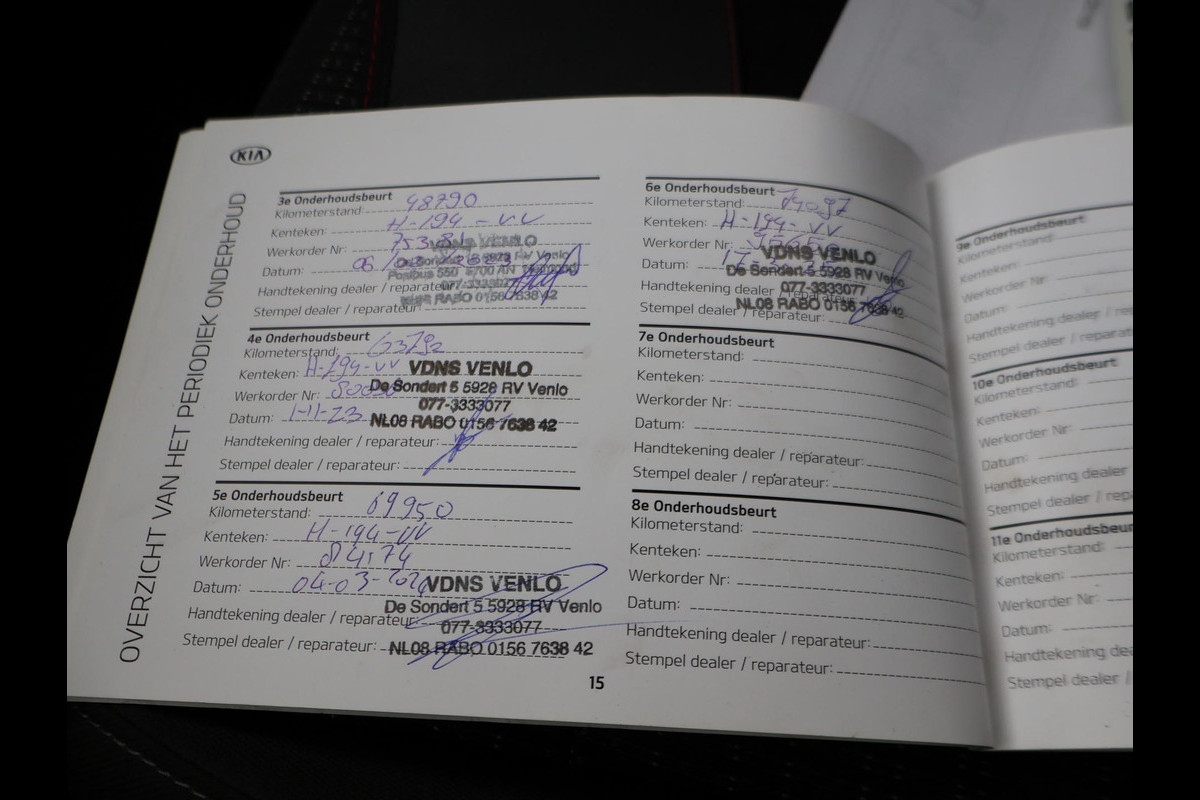 KIA
OVERZICHT VAN HET PERIODIEK ONDERHOUD
3e Onderhoudsbeurt
Kilometerstand: 48790
Kenteken: H-194-VV
Werkorder Nr: 75381
Datum:
Handtekening dealer / reparateur:
Stempel dealer / reparateur:
VDNS VENLO
De Sondert 5 5928 RV Venlo
077-3333077
NL08 RABO 0156 7638 42
4e Onderhoudsbeurt
Kilometerstand: 63792
Kenteken: H-194-VV
Werkorder Nr:
Datum: 1-11-23
Handtekening dealer / reparateur:
Stempel dealer / reparateur:
VDNS VENLO
De Sondert 5 5928 RV Venlo
077-3333077
NL08 RABO 0156 7638 42
5e Onderhoudsbeurt
Kilometerstand: 69950
Kenteken: H-194-VV
Werkorder Nr: 84174
Datum: 04-03-2024
Handtekening dealer / reparateur:
Stempel dealer / reparateur:
VDNS VENLO
De Sondert 5 5928 RV Venlo
077-3333077
NL08 RABO 0156 7638 42
6e Onderhoudsbeurt
Kilometerstand:
Kenteken: H-194-VV
Werkorder Nr:
Datum:
Handtekening dealer / reparateur:
Stempel dealer / reparateur:
VDNS VENLO
De Sondert 5 5928 RV Venlo
077-3333077
NL08 RABO 0156 7638 42
7e Onderhoudsbeurt
Kilometerstand:
Kenteken:
Werkorder Nr:
Datum:
Handtekening dealer / reparateur:
Stempel dealer / reparateur:
8e Onderhoudsbeurt
Kilometerstand:
Kenteken:
Werkorder Nr:
Datum:
Handtekening dealer / reparateur:
Stempel dealer / reparateur:
15
9e Onderhoudsbeurt
Kilometerstand:
Kenteken:
Werkorder Nr:
Datum:
Handtekening dealer / rep
Stempel dealer / reparat
10e Onderhoudsbeurt
Kilometerstand:
Kenteken:
Werkorder Nr:
Datum:
Handtekening dealer
Stempel dealer / rep
11e Onderhoudsbeur
Kilometerstand:
Kenteken:
Werkorder Nr:
Datum:
Handtekening dea
Stempel dealer /